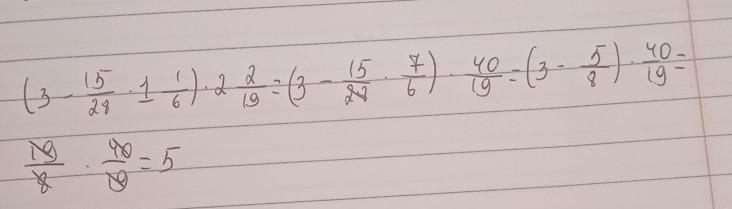 (3 - 15/28 · 1 1/6) · 2 2/19 = (3 - 15/28 · 7/6) · 40/19 = (3 - 5/8) · 40/19 =
19/8 · 40/19 = 5